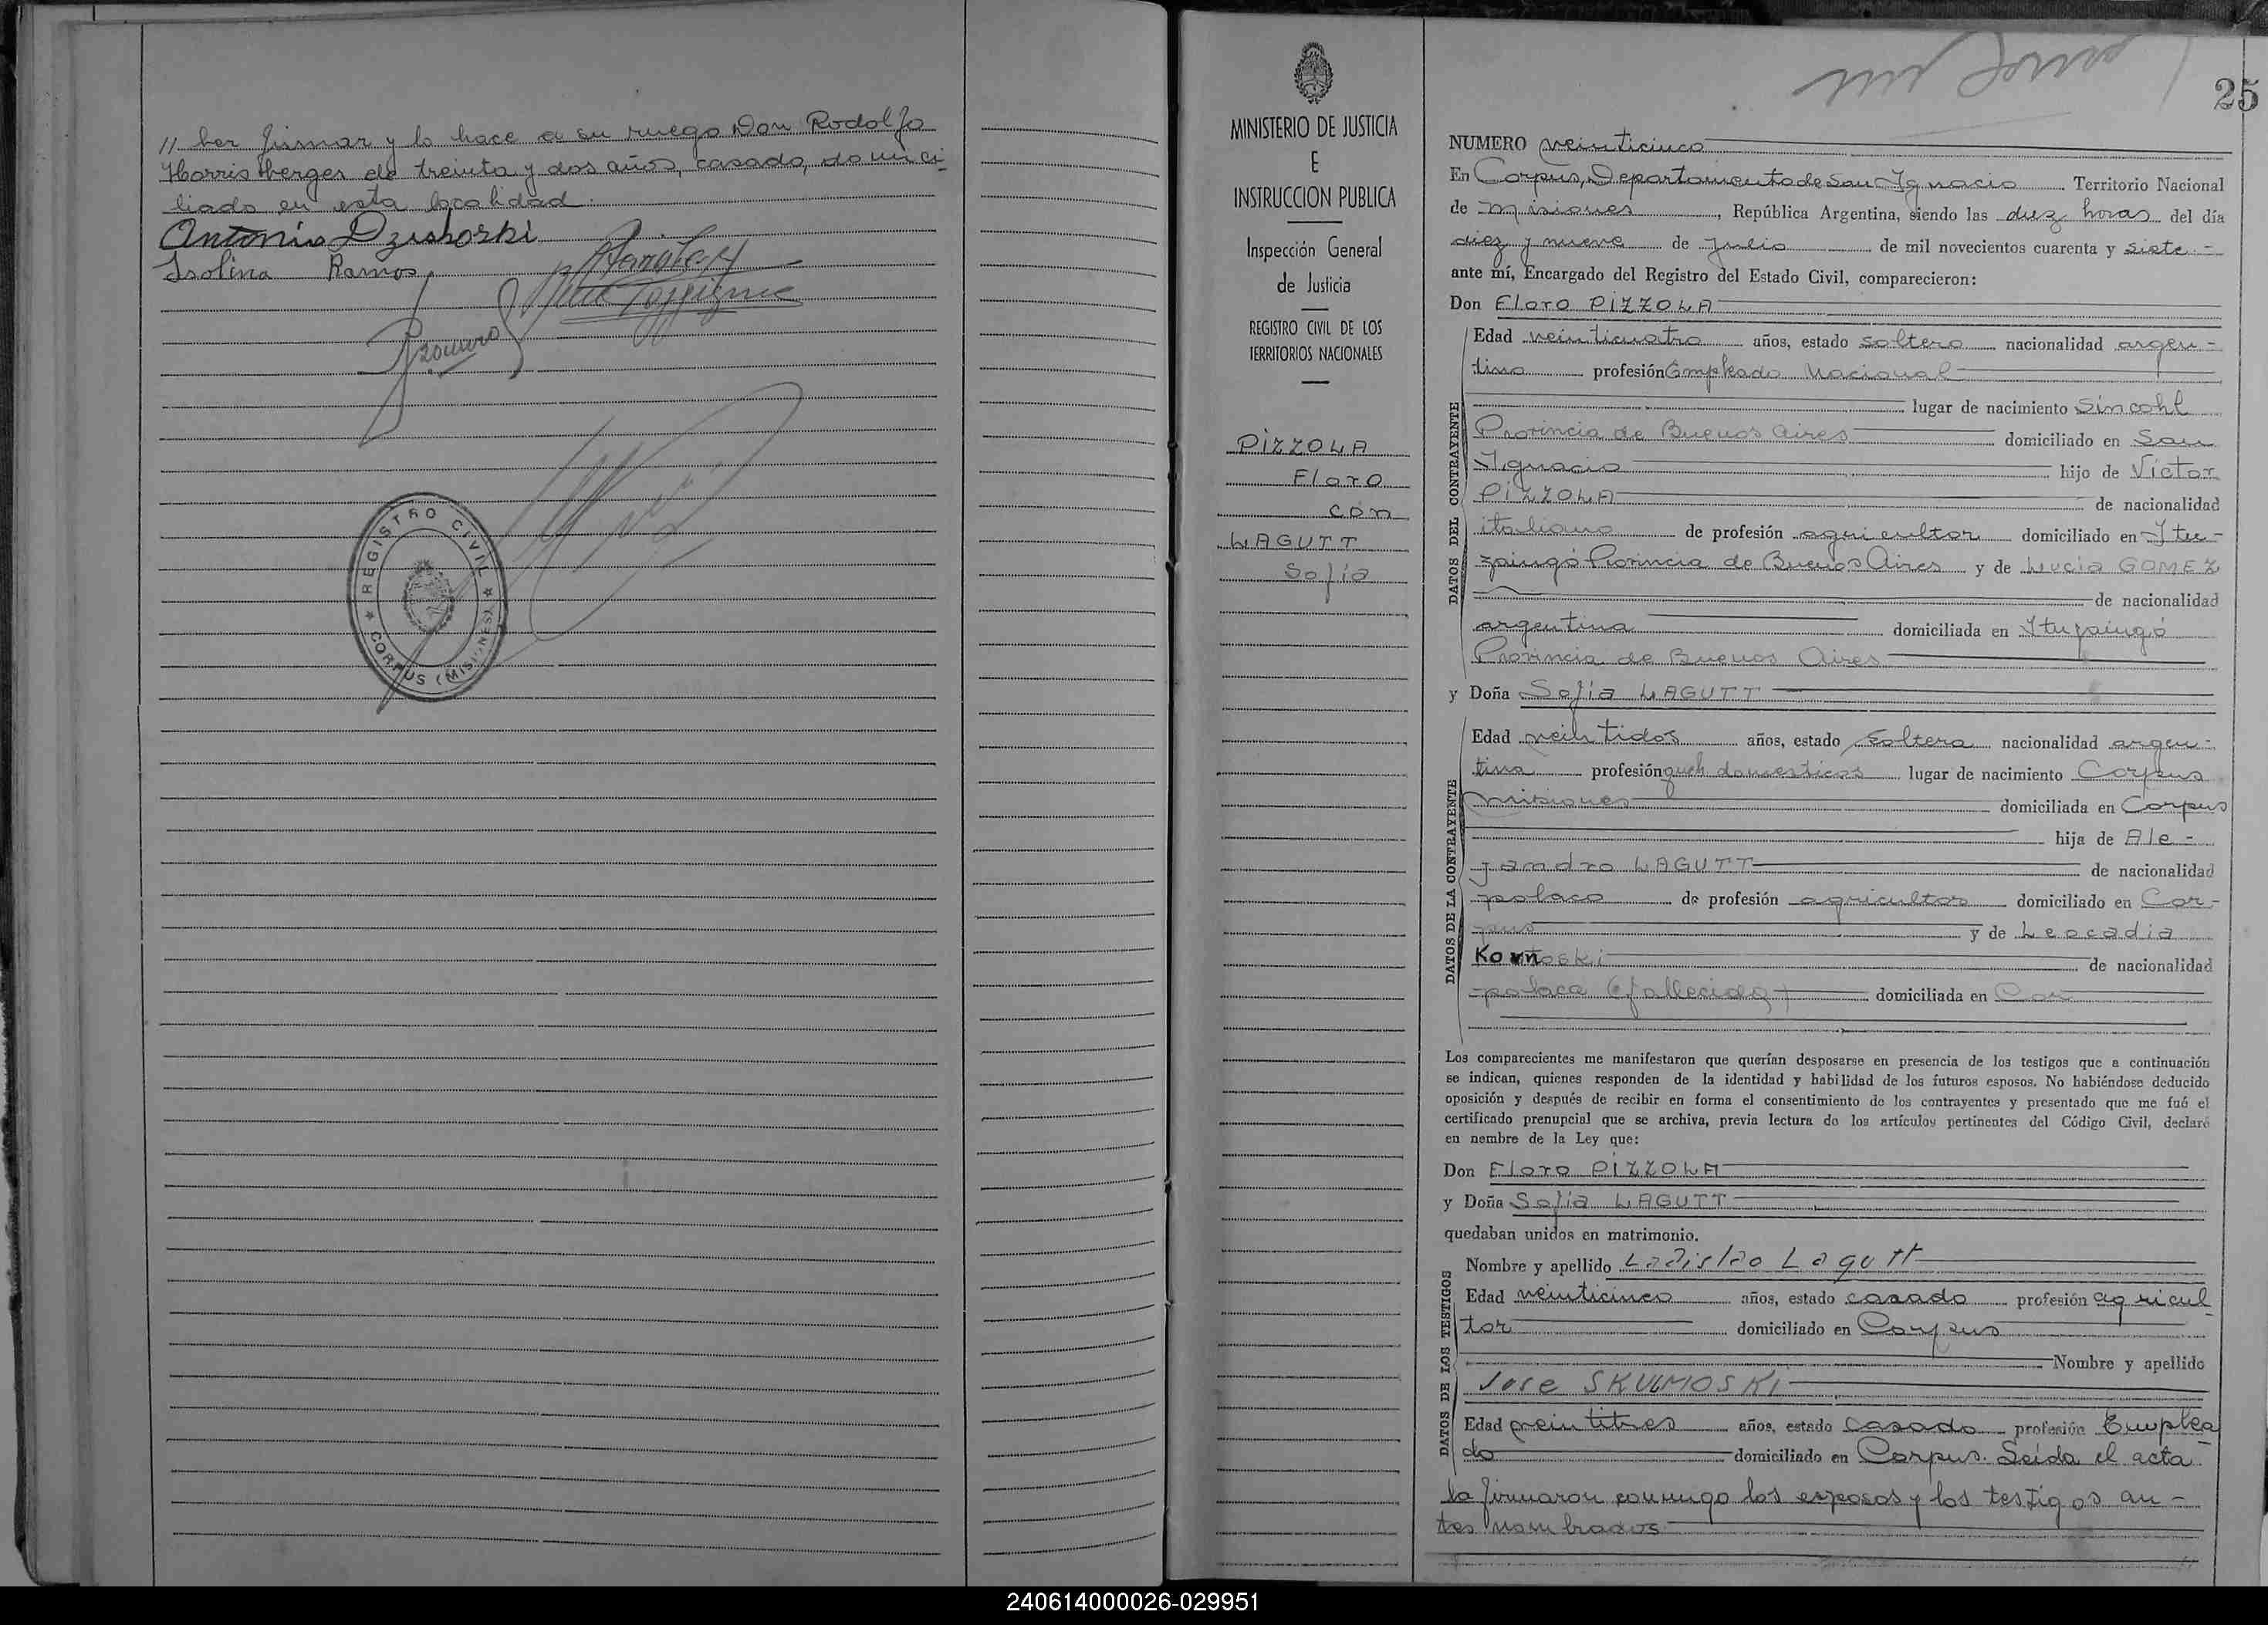 // ber firmar y lo hace a su ruego Don Rodolfo
Harrisberger de treinta y dos años, casado, domici-
liado en esta localidad.
Antonio Dzishorski
Isolina Ramos
REGISTRO CIVIL
CORPUS (MISIONES)
MINISTERIO DE JUSTICIA
E
INSTRUCCION PUBLICA
Inspección General
de Justicia
REGISTRO CIVIL DE LOS
TERRITORIOS NACIONALES
PIZZOLA
Floro
con
LAGUTT
Sofía
25
NUMERO veinticinco
En Corpus, Departamento de San Ignacio Territorio Nacional
de Misiones, República Argentina, siendo las diez horas del día
diez y nueve de Julio de mil novecientos cuarenta y siete.-
ante mí, Encargado del Registro del Estado Civil, comparecieron:
Don Floro PIZZOLA
DATOS DEL CONTRAYENTE
Edad veinticuatro años, estado soltero nacionalidad argen-
tino profesión Empleado Nacional
lugar de nacimiento
Provincia de Buenos Aires domiciliado en San
Ignacio hijo de Víctor
PIZZOLA de nacionalidad
italiano de profesión agricultor domiciliado en Itu-
zaingó Provincia de Buenos Aires y de Lucía GOMEZ
de nacionalidad
argentina domiciliada en Ituzaingó
Provincia de Buenos Aires
y Doña Sofía LAGUTT
DATOS DE LA CONTRAYENTE
Edad veintidos años, estado soltera nacionalidad argen-
tina profesión queh. domesticos lugar de nacimiento Corpus
Misiones domiciliada en Corpus
hija de Ale-
jandro LAGUTT de nacionalidad
polaco de profesión agricultor domiciliado en Cor-
pus y de Leocadia
de nacionalidad
polaca (fallecida) domiciliada en Cor
Los comparecientes me manifestaron que querían desposarse en presencia de los testigos que a continuación
se indican, quienes responden de la identidad y habilidad de los futuros esposos. No habiéndose deducido
oposición y después de recibir en forma el consentimiento de los contrayentes y presentado que me fué el
certificado prenupcial que se archiva, previa lectura de los artículos pertinentes del Código Civil, declaré
en nombre de la Ley que:
Don Floro PIZZOLA
y Doña Sofía LAGUTT
quedaban unidos en matrimonio.
DATOS DE LOS TESTIGOS
Nombre y apellido Ladislao Lagutt
Edad veinticinco años, estado casado profesión agricul
tor domiciliado en Corpus
Nombre y apellido
Jose SKULMOSKI
Edad veintitres años, estado casado profesión Emplea
do domiciliado en Corpus. Leída el acta
la firmaron conmigo los esposos y los testigos an-
tes nombrados
240614000026-029951